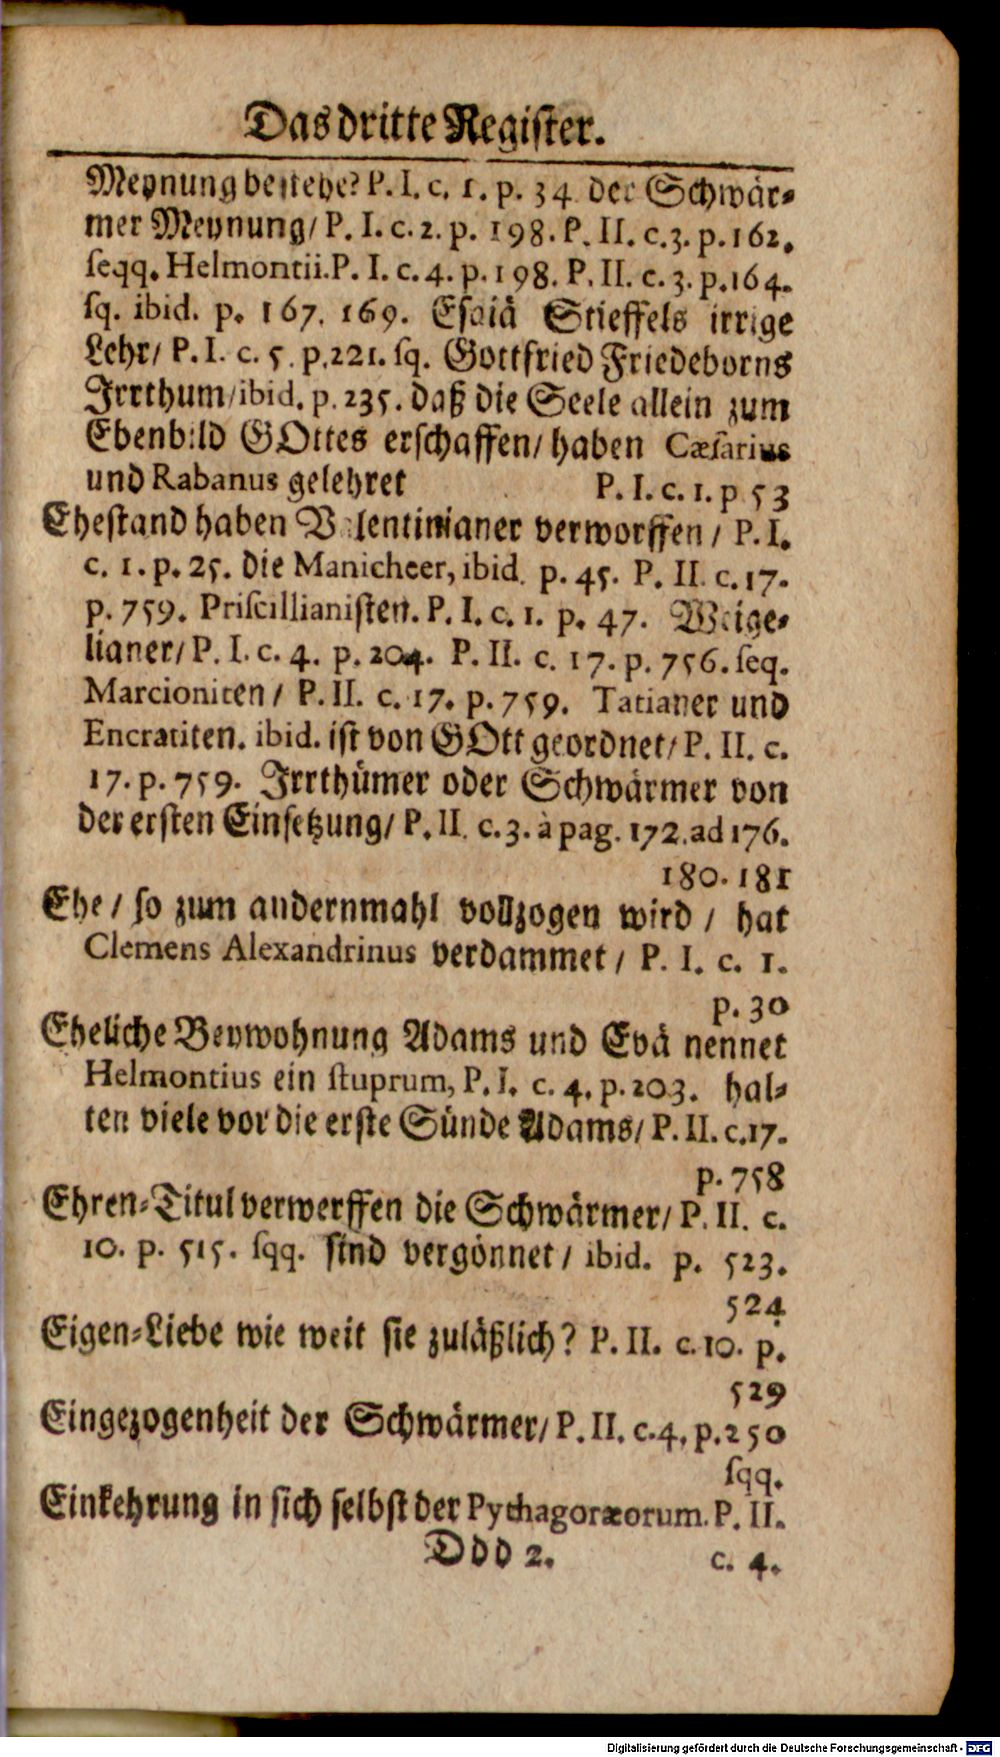 Das dritte Register.
Meynung bestehe? P. I. c. 1. p. 34. der Schwär-
mer Meynung/ P. I. c. 2. p. 198. P. II. c. 3. p. 162.
seqq. Helmontii. P. I. c. 4. p. 198. P. II. c. 3. p. 164.
sq. ibid. p. 167. 169. Esaiä Stieffels irrige
Lehr/ P. I. c. 5. p. 221. sq. Gottfried Friedeborns
Irrthum/ ibid. p. 235. daß die Seele allein zum
Ebenbild GOttes erschaffen/ haben Cæsarius
und Rabanus gelehret P. I. c. 1. p 53
Ehestand haben Valentinianer verworffen / P. I.
c. 1. p. 25. die Manicheer, ibid. p. 45. P. II. c. 17.
p. 759. Priscillianisten. P. I. c. 1. p. 47. Weige-
lianer/ P. I. c. 4. p. 204. P. II. c. 17. p. 756. seq.
Marcioniten / P. II. c. 17. p. 759. Tatianer und
Encratiten. ibid. ist von GOtt geordnet/ P. II. c.
17. p. 759. Irrthümer oder Schwärmer von
der ersten Einsetzung/ P. II. c. 3. à pag. 172. ad 176.
180. 181
Ehe / so zum andernmahl vollzogen wird / hat
Clemens Alexandrinus verdammet / P. I. c. 1.
p. 30
Eheliche Beywohnung Adams und Evä nennet
Helmontius ein stuprum, P. I. c. 4. p. 203. hal-
ten viele vor die erste Sünde Adams/ P. II. c. 17.
p. 758
Ehren-Titul verwerffen die Schwärmer/ P. II. c.
10. p. 515. sqq. sind vergönnet / ibid. p. 523.
524
Eigen-Liebe wie weit sie zuläßlich? P. II. c. 10. p.
529
Eingezogenheit der Schwärmer/ P. II. c. 4. p. 250
sqq.
Einkehrung in sich selbst der Pythagoræorum. P. II.
Ddd 2. c. 4.
Digitalisierung gefördert durch die Deutsche Forschungsgemeinschaft - DFG